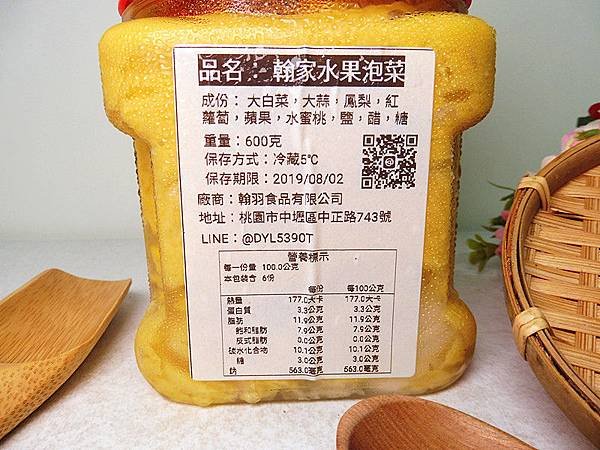 品名：翰家水果泡菜
成份：大白菜，大蒜，鳳梨，紅
蘿蔔，蘋果，水蜜桃，鹽，醋，糖
重量：600克
保存方式：冷藏5℃
保存期限：2019/08/02
廠商：翰羽食品有限公司
地址：桃園市中壢區中正路743號
LINE：@DYL5390T
營養標示
每一份量 100.0公克
本包裝含 6份
每份 每100公克
熱量 177.0大卡 177.0大卡
蛋白質 3.3公克 3.3公克
脂肪 11.9公克 11.9公克
飽和脂肪 7.9公克 7.9公克
反式脂肪 0.0公克 0.0公克
碳水化合物 10.1公克 10.1公克
糖 3.0公克 3.0公克
鈉 563.0毫克 563.0毫克